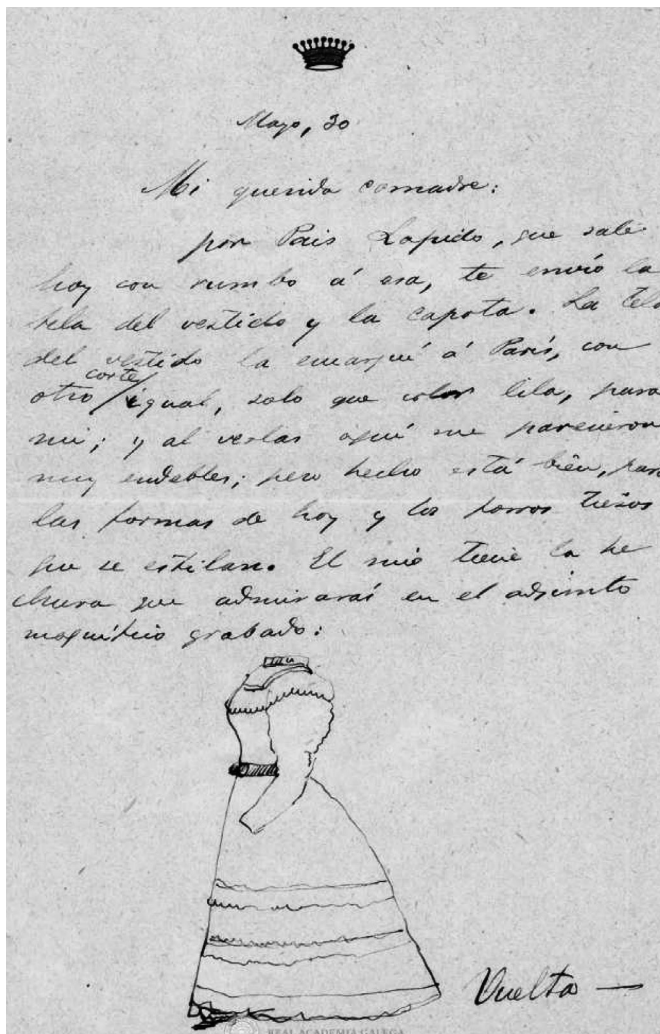 Mayo, 30
Mi querida comadre:
por Pais Lapido, que sale
hoy con rumbo á esa, te envio la
tela del vestido y la capota. La tela
del vestido la encargué á París, con
otro corte igual, solo que color lila, para
mi; y al verlas aquí me parecieron
muy endebles; pero hecho está bien, para
las formas de hoy y los forros tiesos
que se estilan. El mio tiene la he
chura que admirarás en el adjunto
magnífico grabado:
Vuelta —
REAL ACADEMIA GALEGA